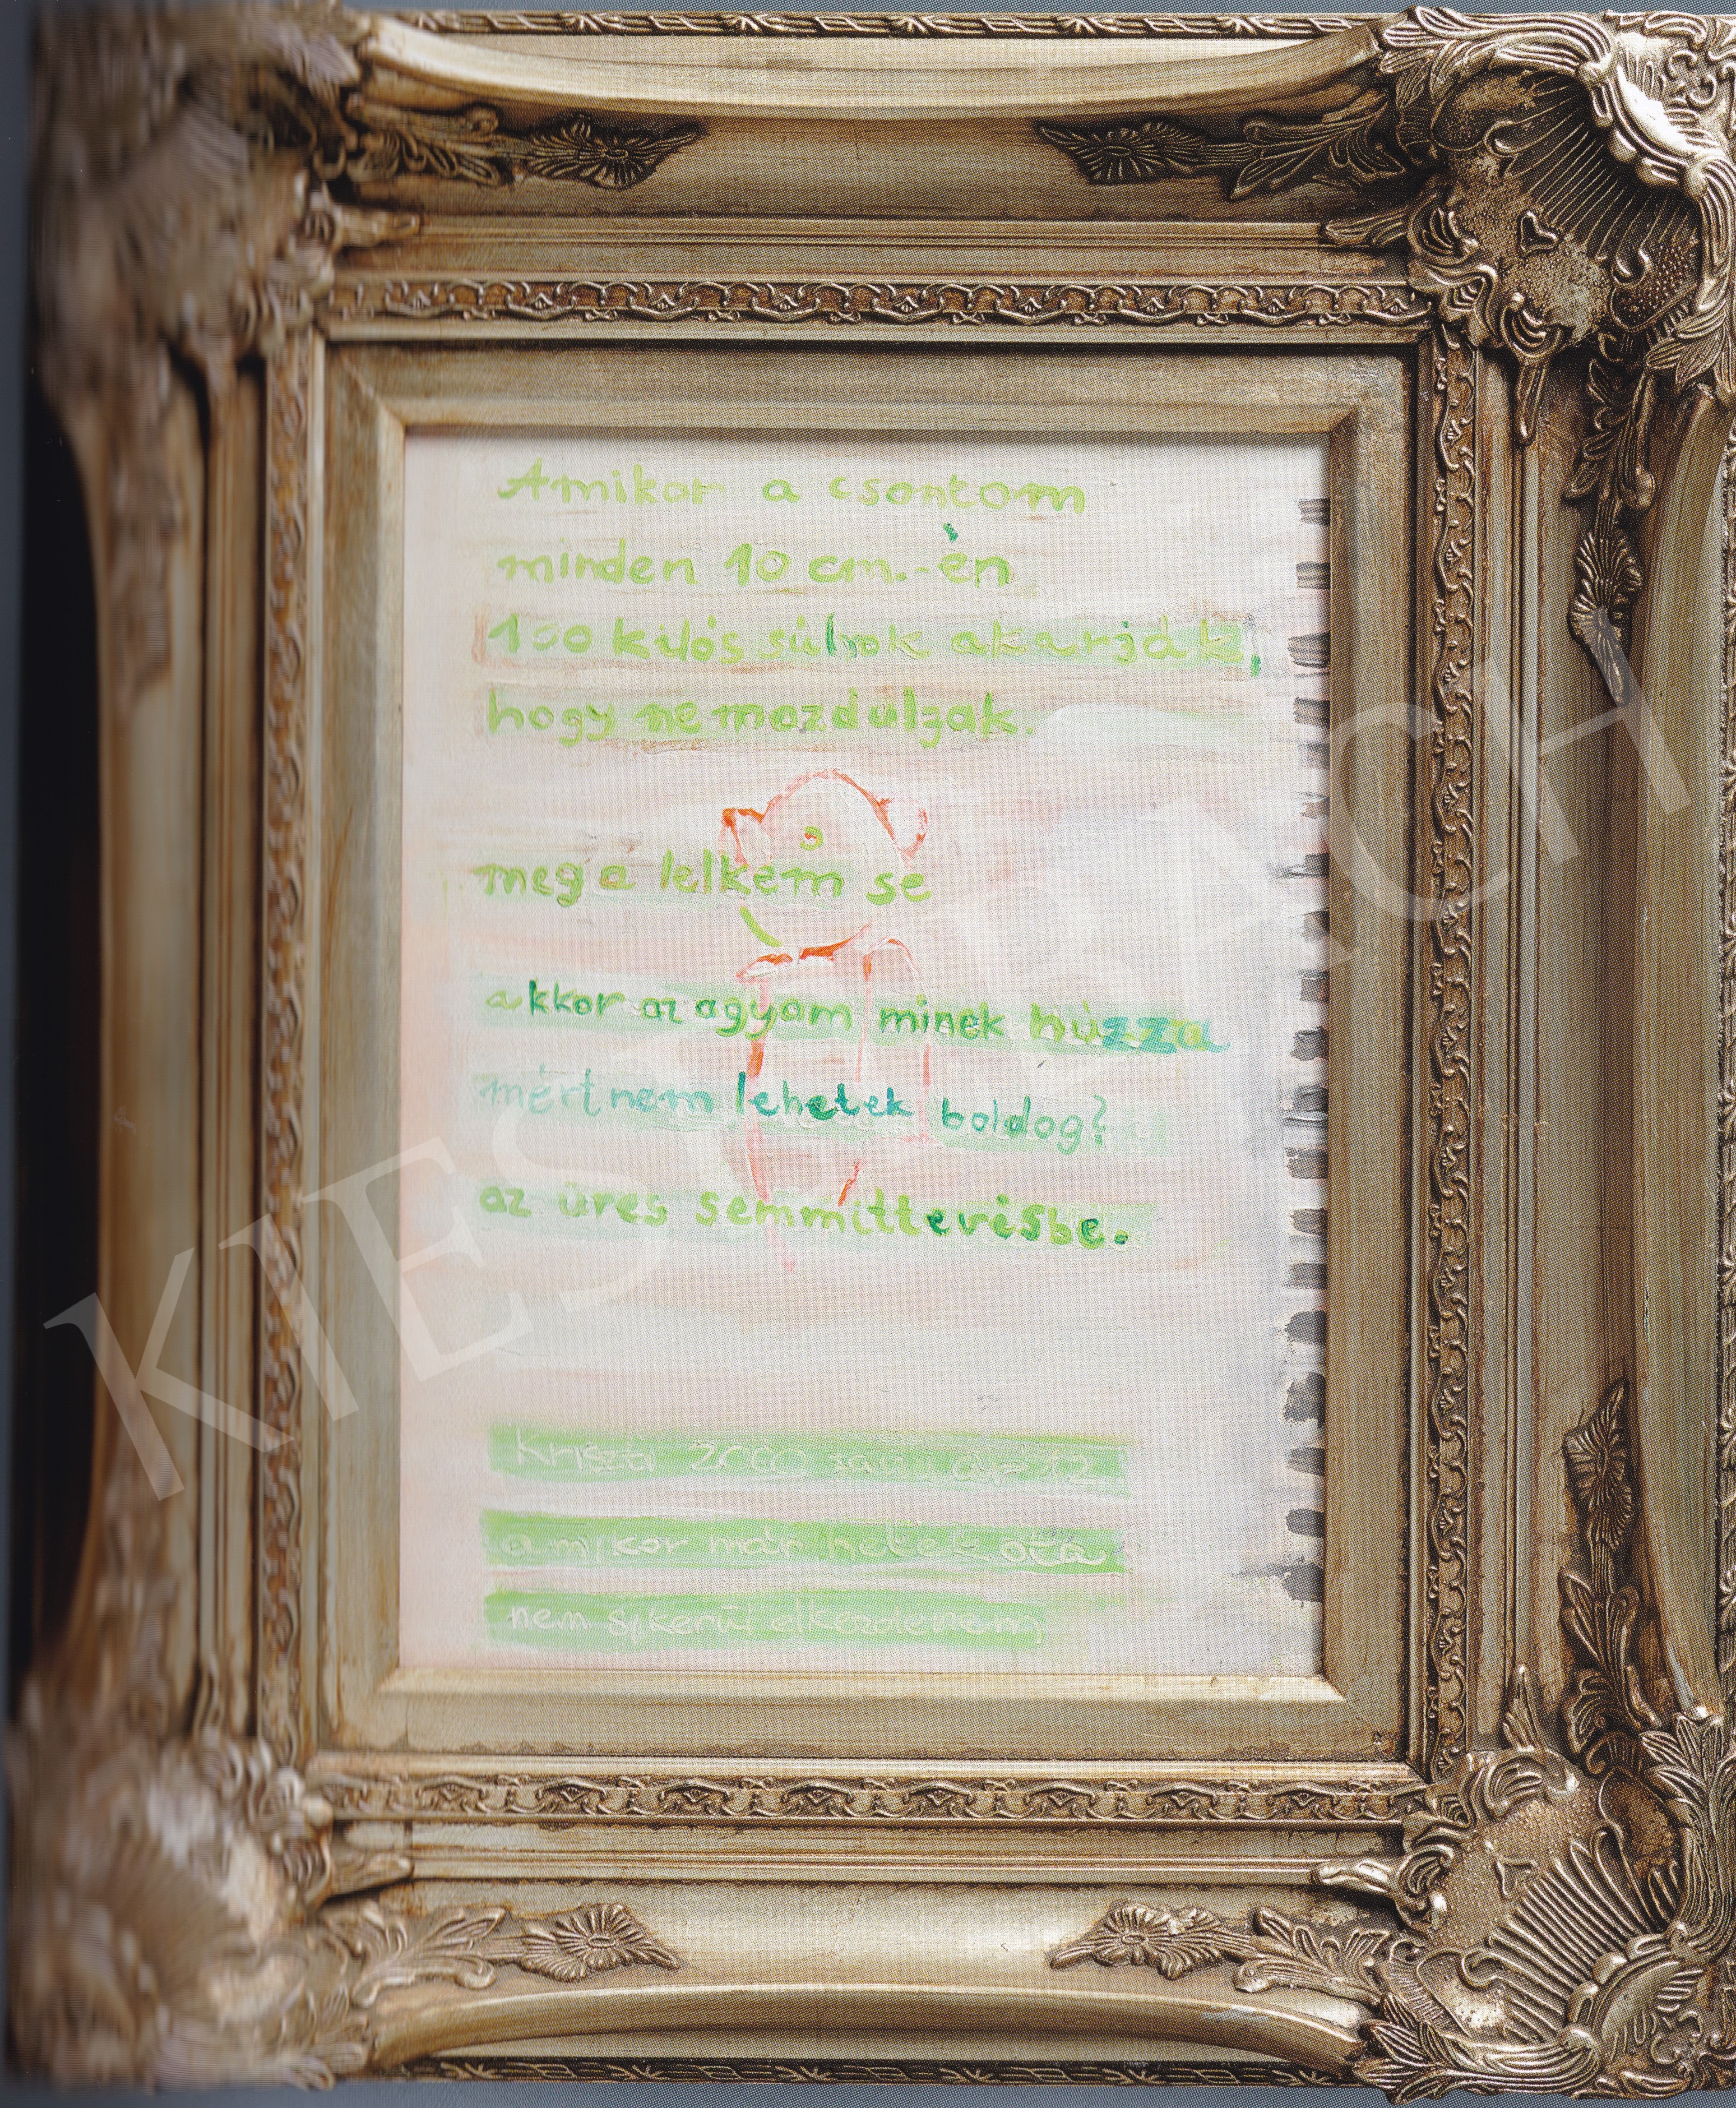 Amikor a csontom
minden 10 cm.-én
100 kilós súlyok akarják,
hogy ne mozduljak.
meg a lelkem se
akkor az agyam minek húzza
mért nem lehetek boldog?
az üres semmittevésbe.
Kriszti 2000 január 12
amikor már hetek óta
nem sikerül elkezdenem
KIESELBACH